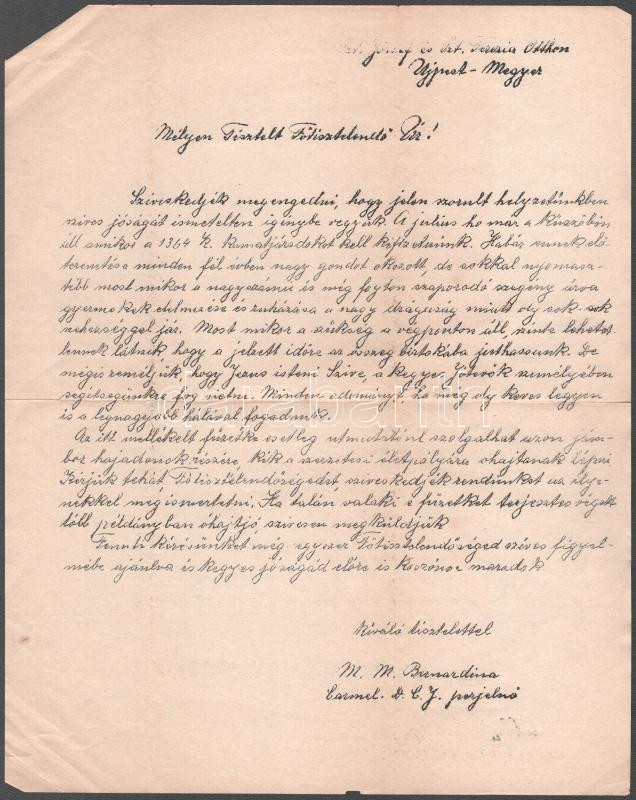 Szt. József és Szt. Terézia Otthon
Ujpest-Megyer
Mélyen Tisztelt Főtisztelendő Úr!
Sziveskedjék megengedni, hogy jelen szorult helyzetünkben
szives jóságát ismetelten igénybe vegyük. A julius hó már a küszöbön
áll amikor a 1364 K. kamatjáradokot kell kifizetnünk. Habár ennek elő-
teremtése minden fél évben nagy gondot okozott, de sokkal nyomasz-
tóbb most mikor a nagyszámu és még fogton szaporodó szegény árva
gyermekek élelmezése és ruházása a nagy drágaság miatt oly sok-sok
nehézséggel jár. Most mikor a szükség a végponton áll, szinte lehetet-
lennek látszik, hogy a jelzett időre az összeg birtokába juthassunk. De
mégis reméljük, hogy Jézus isteni Szive, a kegyes Jótevők személyében
segitségünkre fog sietni. Minden adományt, ha még oly kevés legyen
is a legnagyobb hálával fogadunk.
Az itt mellékelt füzetke esetleg utmutatóul szolgálhat azon jám-
bor hajadonok részére, kik a szerzetesi életpályára óhajtanak lépni.
Kérjük tehát Főtisztelendőségedet sziveskedjék rendünket az ilye-
nekkel megismertetni, Ha talán valaki e füzetket terjesztés végett
több példányban óhajtja szivesen megküldjük
Fenti kérésünket még egyszer Főtisztelendőséged szives figyel-
mébe ajánlva és kegyes jóságád előre is köszönve maradok
Kiváló tisztelettel
M. M. Bernardina
Carmel. D. C. J. perjelnő
darabanth